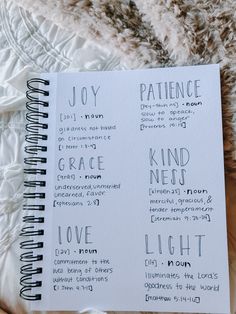 JOY
[joi] • noun
gladness not based
on circumstance
[1 Peter 1:8-9]
GRACE
• noun
undeserved, unmerited
unearned, favor
[ephesians 2:8]
LOVE
[ləv] • noun
Commitment to the
well being of others
without conditions
[1 John 4:7-8]
PATIENCE
• noun
slow to speak,
slow to anger
[Proverbs 16:32]
KIND
NESS
• noun
merciful, gracious, &
tender temperament
[Jeremiah 9:23-24]
LIGHT
[līt] • noun
illuminates the Lord's
goodness to the world
[matthew 5:14-16]